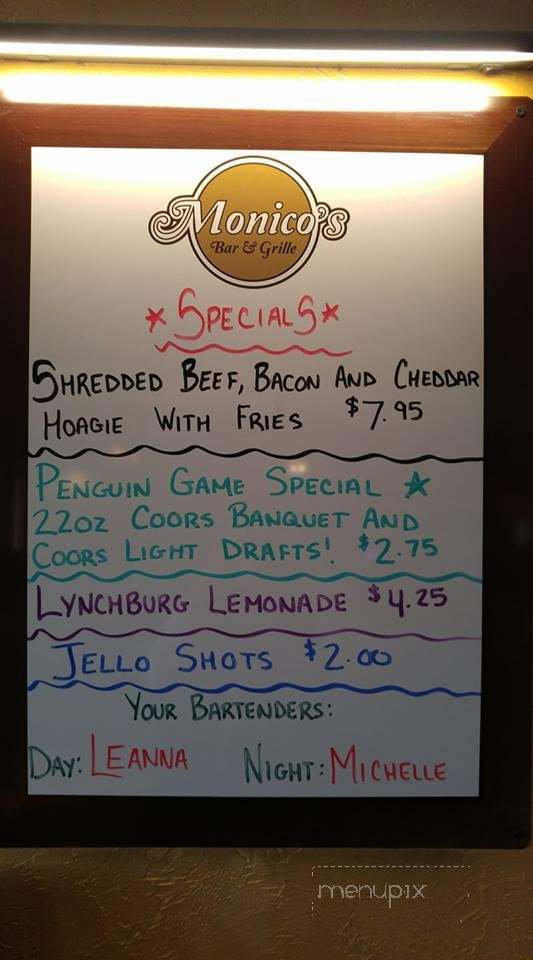 Monico's
Bar & Grille
* SPECIALS *
SHREDDED BEEF, BACON AND CHEDDAR
HOAGIE WITH FRIES $7.95
PENGUIN GAME SPECIAL ★
22OZ COORS BANQUET AND
COORS LIGHT DRAFTS! $2.75
LYNCHBURG LEMONADE $4.25
JELLO SHOTS $2.00
YOUR BARTENDERS:
DAY: LEANNA NIGHT: MICHELLE
menupix